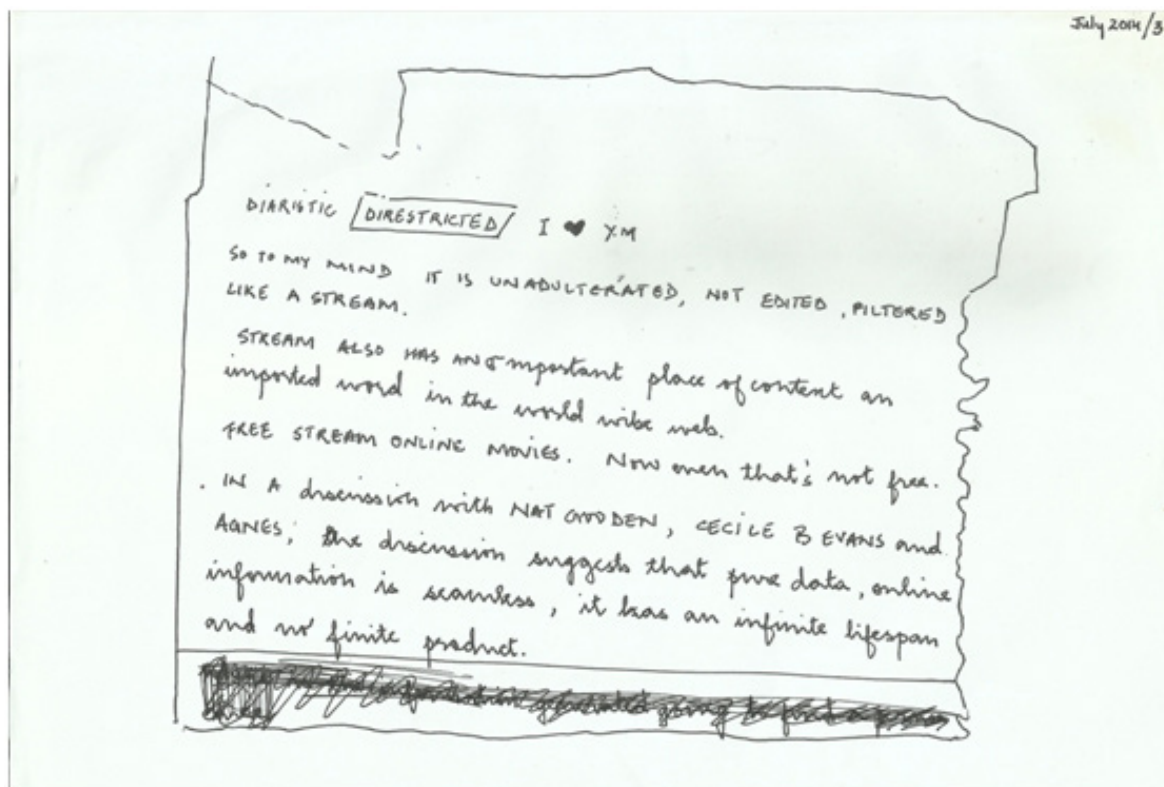 July 2014/3
DIARISTIC DIRESTRICTED I ♥ Y.M
SO TO MY MIND IT IS UNADULTERATED, NOT EDITED, FILTERED
LIKE A STREAM.
STREAM ALSO HAS AN important place of content an
imported word in the world wibe web.
FREE STREAM ONLINE MOVIES. Now even that's not free.
. IN A discussion with NAT GOODEN, CECILE B EVANS and
AGNES; the discussion suggests that pure data, online
information is seamless, it has an infinite lifespan
and no finite product.